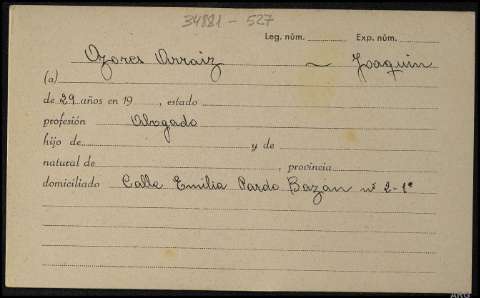 34881 - 527
Leg. núm. Exp. núm.
Ozores Arraiz ~ Joaquin
(a)
de 29 años en 19 , estado
profesión Abogado
hijo de y de
natural de , provincia
domiciliado Calle Emilia Pardo Bazán nº 2-1º